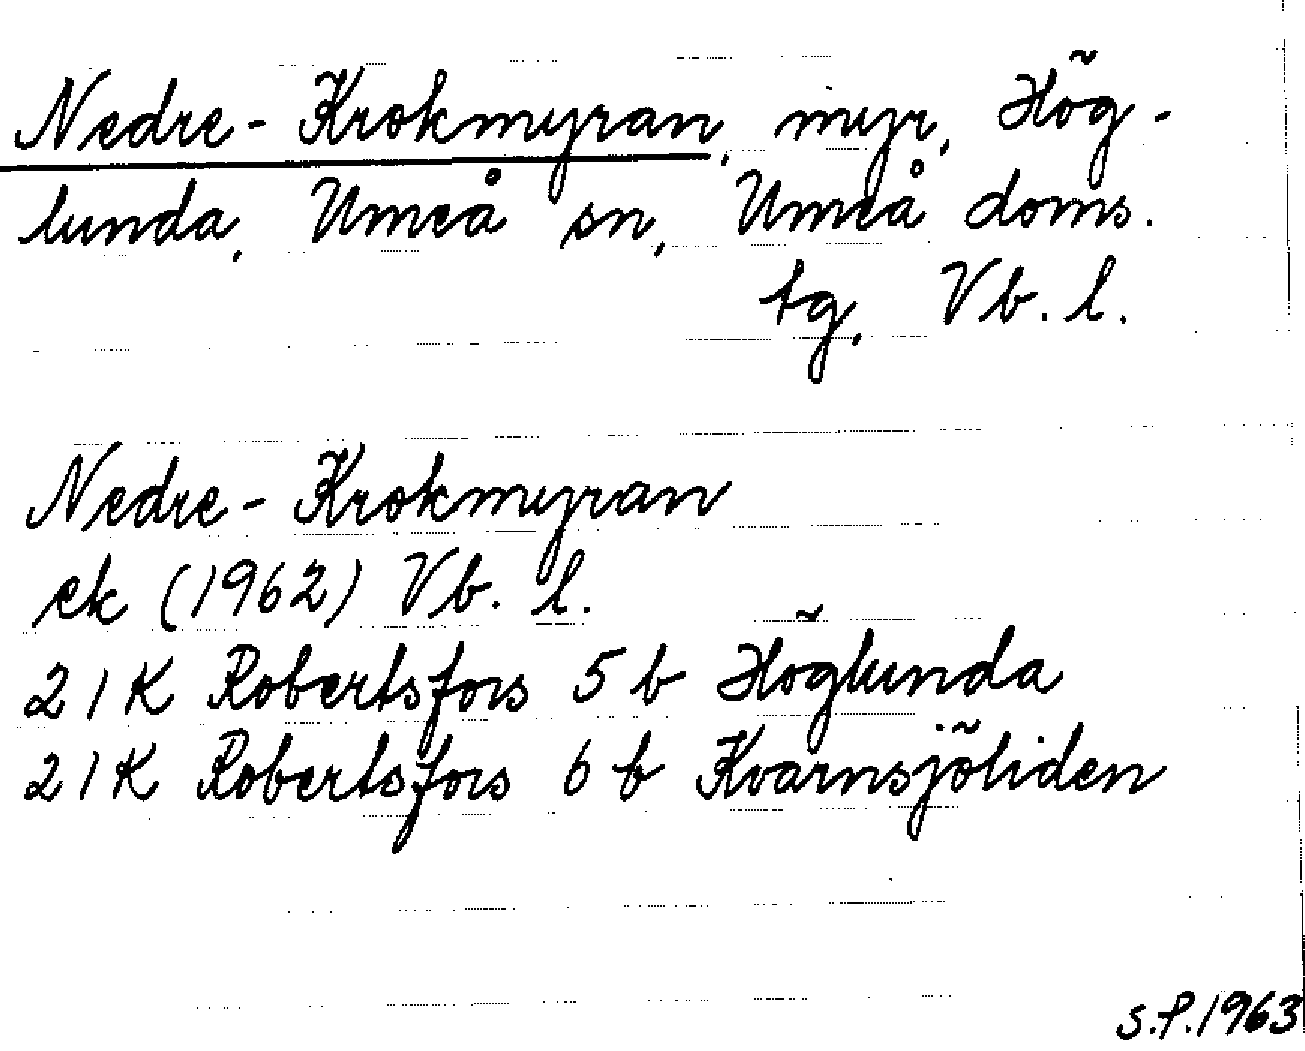 Nedre-Krokmyran, myr, Hög-
lunda, Umeå sn, Umeå doms.
tg, Vb. l.
Nedre-Krokmyran
ek (1962) Vb. l.
21K Robertsfors 5 b Höglunda
21K Robertsfors 6 b Kvarnsjöliden
S.P.1963